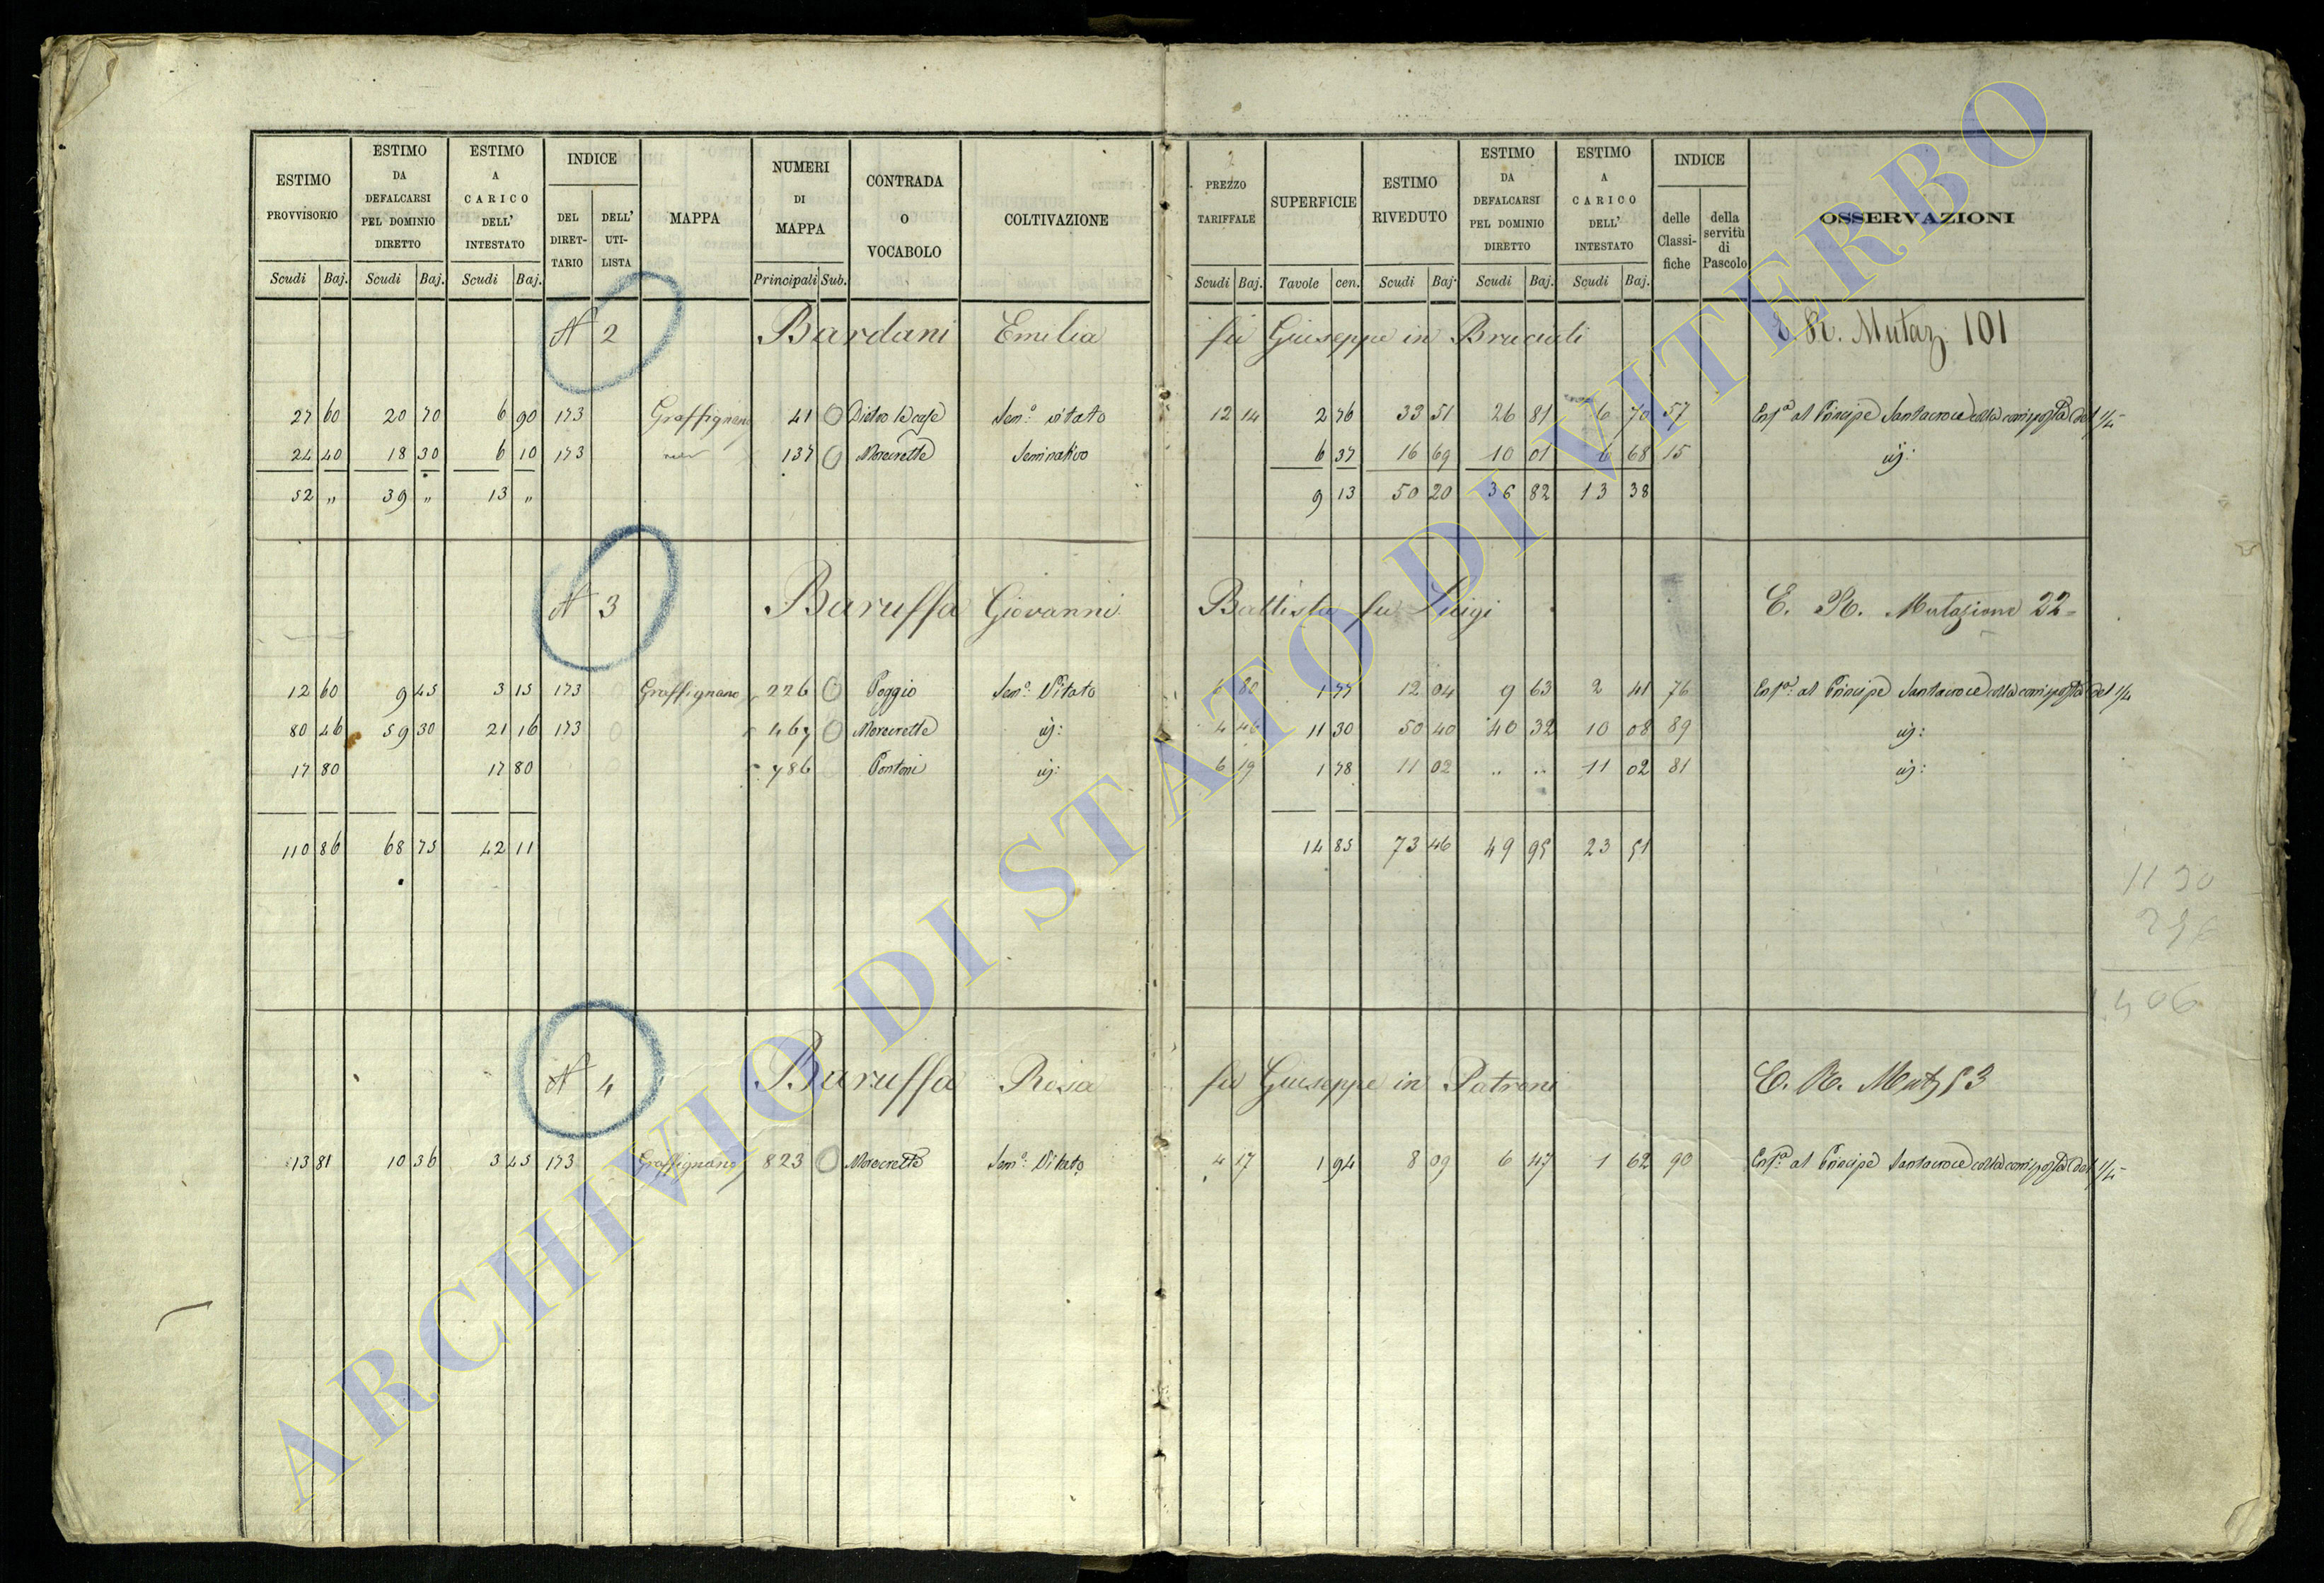 ESTIMO PROVVISORIO Scudi Baj. ESTIMO DA DEFALCARSI PEL DOMINIO DIRETTO Scudi Baj. ESTIMO A CARICO DELL' INTESTATO Scudi Baj. INDICE DEL DIRETTARIO DELL' UTILISTA MAPPA NUMERI DI MAPPA Principali Sub. CONTRADA O VOCABOLO COLTIVAZIONE PREZZO TARIFFALE Scudi Baj. SUPERFICIE Tavole cen. ESTIMO RIVEDUTO Scudi Baj. ESTIMO DA DEFALCARSI PEL DOMINIO DIRETTO Scudi Baj. ESTIMO A CARICO DELL' INTESTATO Scudi Baj. INDICE delle Classifiche della servitù di Pascolo OSSERVAZIONI
N 2 Bardani Emilia fu Giuseppe in Bruciati E. R. Mutaz. 101
27 60 20 70 6 90 173 Graffignano 41 Dietro le case Sem.o vitato 12 14 2 76 33 51 26 81 6 70 57 al Principe Santacroce colla corrisposta del 1/4
24 40 18 30 6 10 173 137 Morcirette Seminativo 6 37 16 69 10 01 6 68 15 id:
52 „ 39 „ 13 „ 9 13 50 20 36 82 13 38
N 3 Baruffa Giovanni Battista fu Luigi E. R. Mutazione 22
12 60 9 45 3 15 173 Graffignano 226 Poggio Sem.o Vitato 6 80 1 77 12 04 9 63 2 41 76 al Principe Santacroce colla corrisposta del 1/4
80 46 59 30 21 16 173 467 Morcirette id: 4 46 11 30 50 40 40 32 10 08 89 id:
17 80 17 80 786 Pontoni id: 6 19 1 78 11 02 .. .. 11 02 81 id:
110 86 68 75 42 11 14 85 73 46 49 95 23 51
N 4 Baruffa Rosa fu Giuseppe in Patroni E. R. Mutaz 53
13 81 10 36 3 45 173 Graffignano 823 Morcirette Sem.o Vitato 4 17 1 94 8 09 6 47 1 62 90 al Principe Santacroce colla corrisposta del 1/4
ARCHIVIO DI STATO DI VITERBO